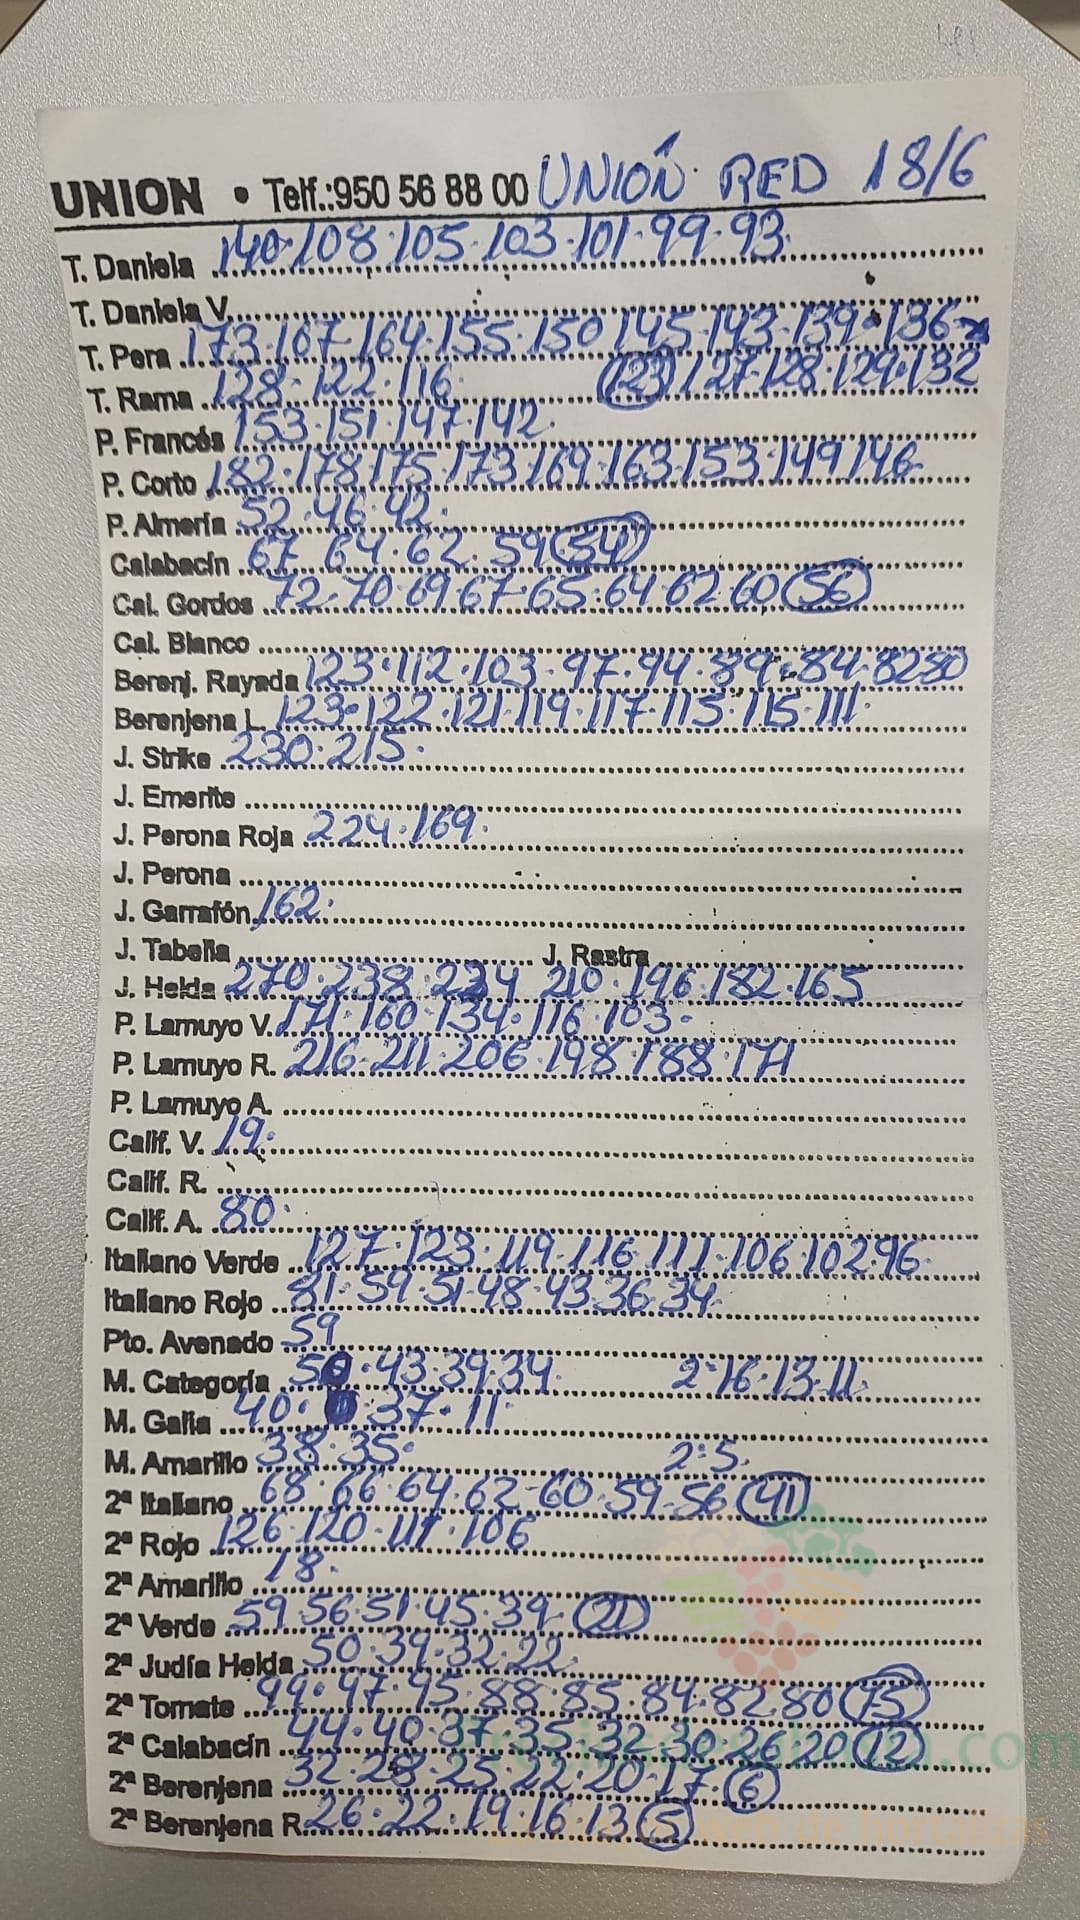 UNION • Telf.:950 56 88 00 UNIÓN RED 18/6
T. Daniela 140·108·105·103·101·99·93·
T. Daniela V.
T. Pera 173·167·164·155·150 145·143·139·136
T. Rama 128·122·116· (123) 127·128·129·132
P. Francés 153·151·147·142·
P. Corto 182·178·175·173·169·163·153·149 146·
P. Almería 52·46·42·
Calabacín 67 64·62·59 (54)
Cal. Gordos 72·70·69·67·65·64·62·60 (56)
Cal. Blanco
Berenj. Rayada 123·112·103·97·94·89·84·82 80
Berenjena L. 123·122·121·119·117·115·115·111·
J. Strike 230·215·
J. Emerite
J. Perona Roja 224·169·
J. Perona
J. Garrafón 162·
J. Tabella J. Rastra
J. Helda 270·238·224 210·196·182·165
P. Lamuyo V. 171·160·134·116·103·
P. Lamuyo R. 216·211·206·198·188·171
P. Lamuyo A.
Calif. V. 19·
Calif. R.
Calif. A. 80·
Italiano Verde 127·123·119·116·111·106·102·96·
Italiano Rojo 81·59·51·48·43·36·34·
Pto. Avenado 59
M. Categoría 50·43·39·34· 2·16·13·11·
M. Galia 40· 37·11·
M. Amarillo 38·35· 2·5·
2ª Italiano 68·66·64·62·60·59·56 (41)
2ª Rojo 126·120·111·106
2ª Amarillo 18·
2ª Verde 59·56·51·45·39· (21)
2ª Judía Helda 50·39·32·22·
2ª Tomate 99·97·95·88·85·84·82·80 (75)
2ª Calabacín 44·40·37·35·32·30·26·20 (12)
2ª Berenjena 32·28·25·22·20·17·(6)
2ª Berenjena R. 26·22·19·16·13 (5)
.com
web de hortalizas